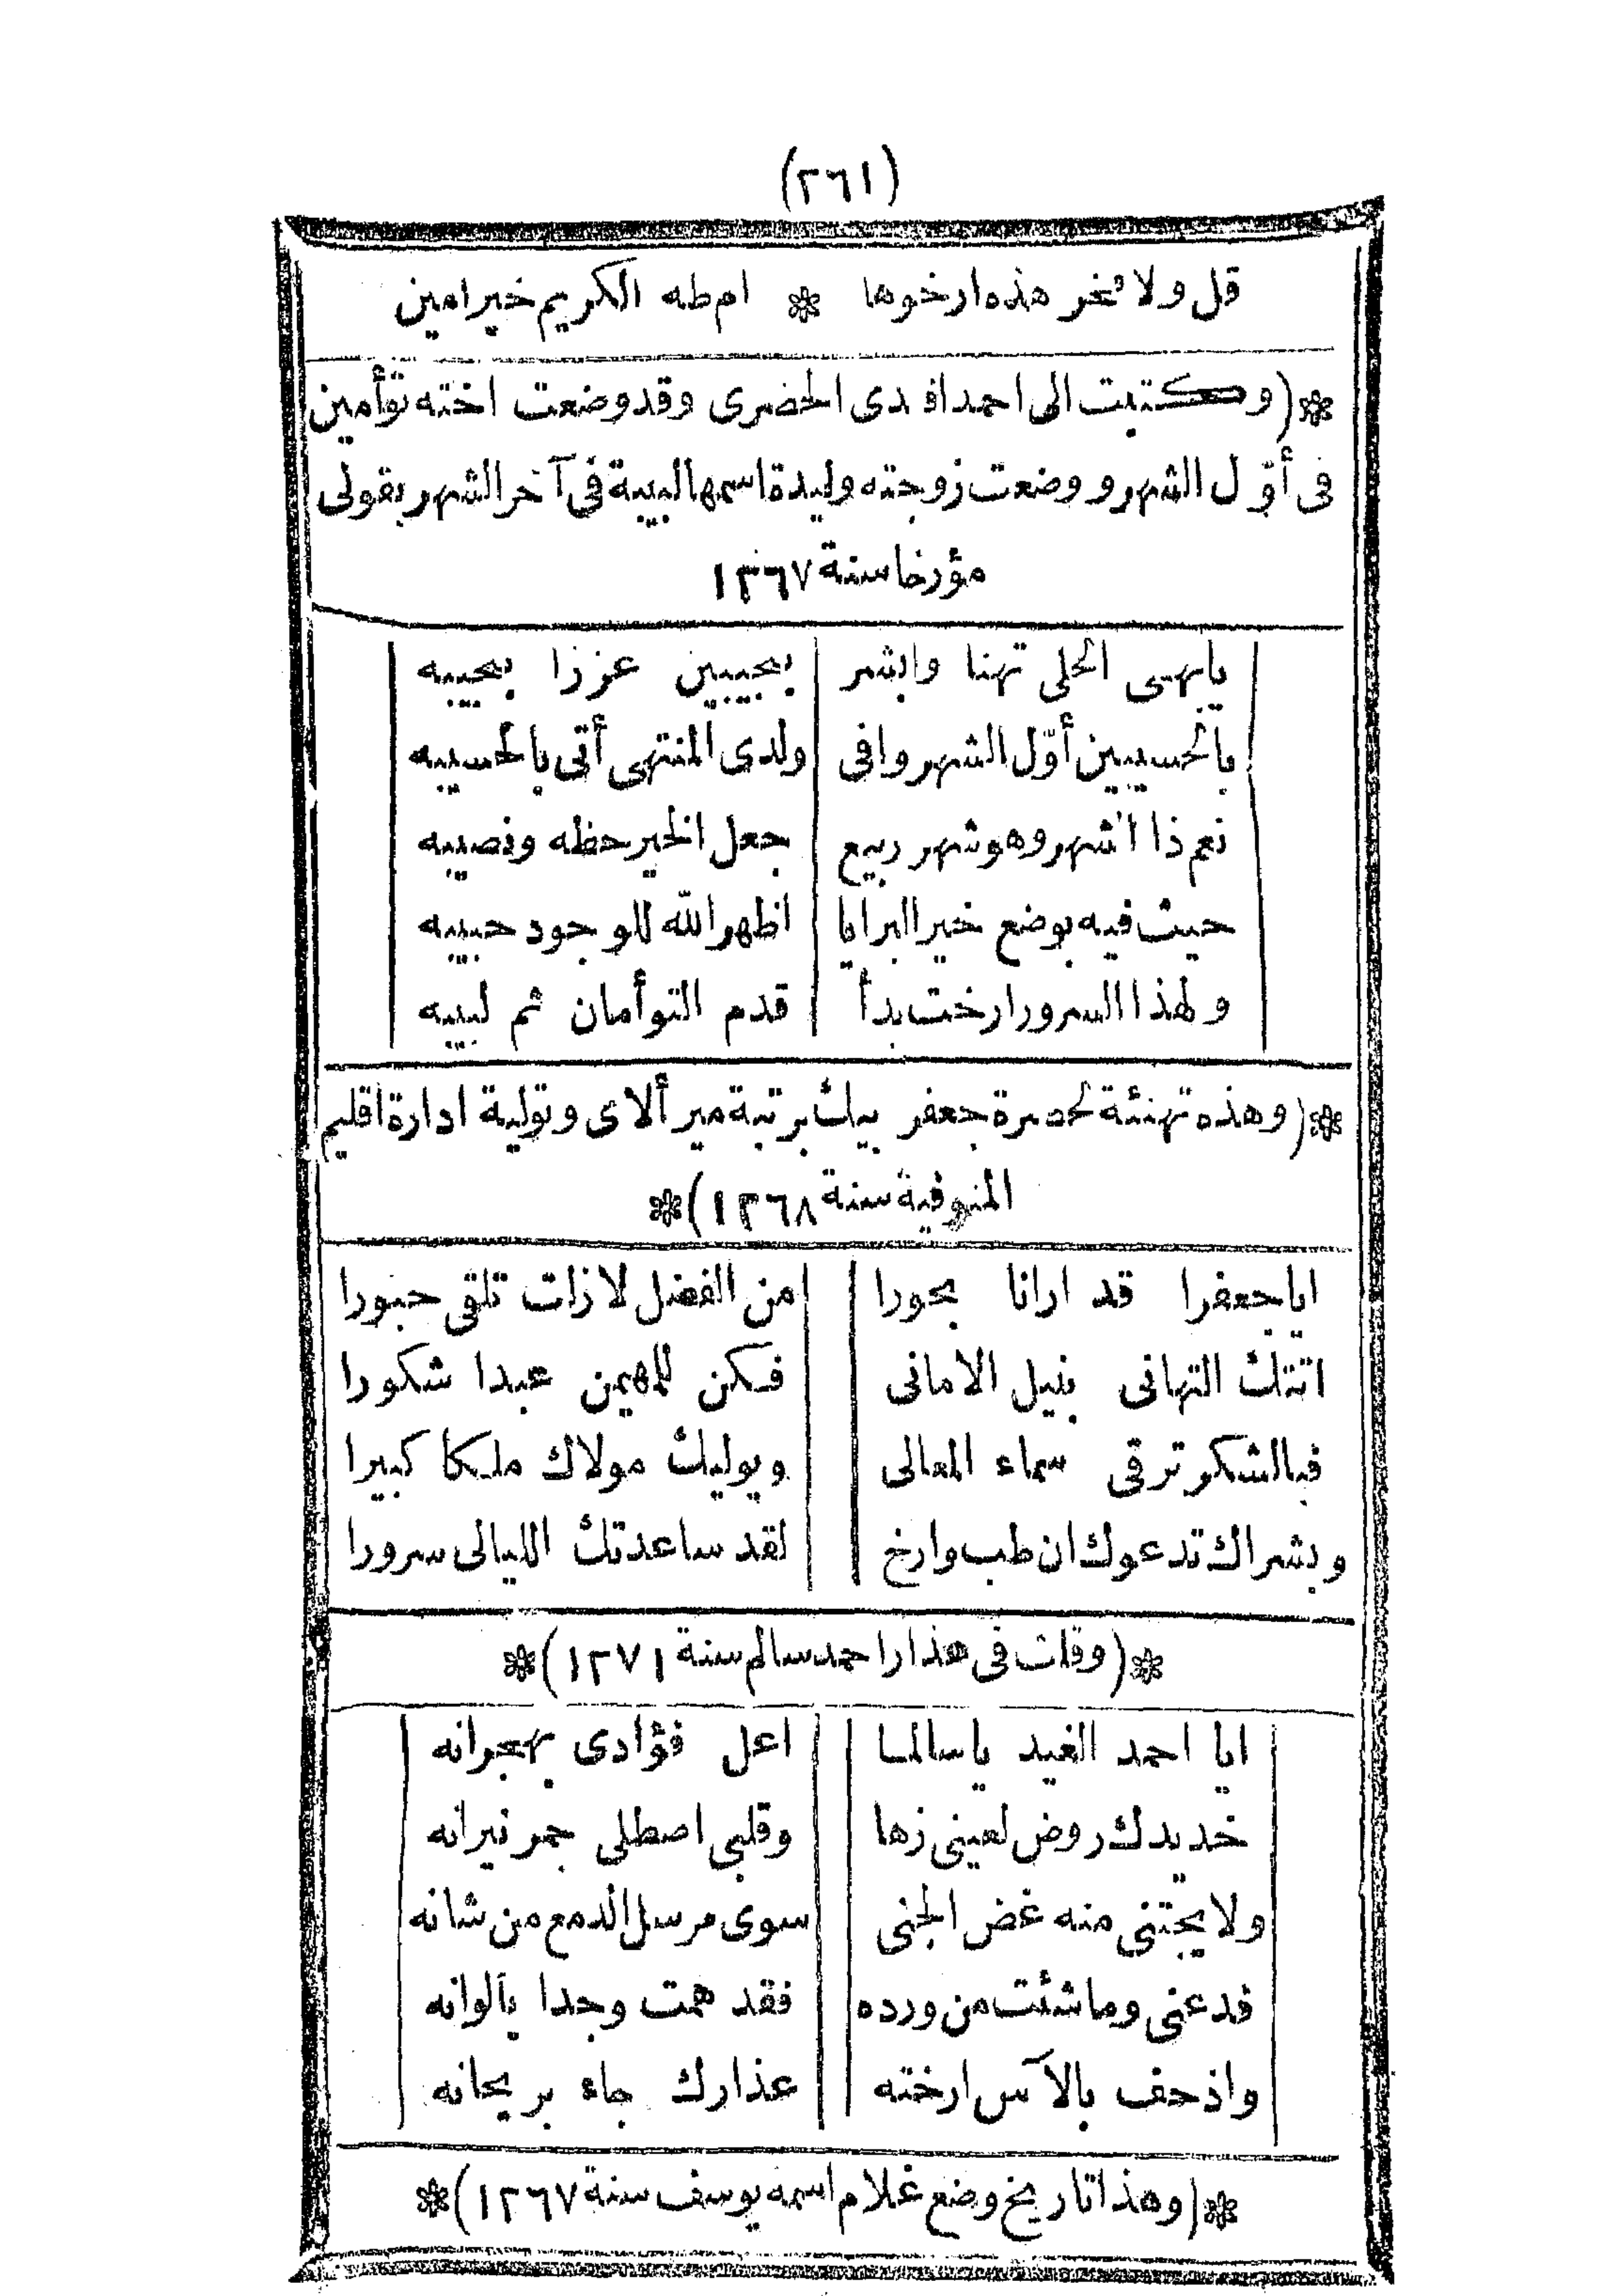 (٢٦١)
قل ولا فخر هذه ارخوها * ام طه الكريم خير امين
*(وكتبت الى احمد افندى الخضرى وقد وضعت اخته توأمين
فى أوّل الشهر ووضعت زوجته وليدة اسمها لبيبة فى آخر الشهر بقولى
مؤرخا سنة ١٢٦٧
يا بهى الحلى تهنا وابشر بحبيبين عززا بحبيبه
بالحسيبين أوّل الشهر وافى ولدى المنتهى أتى بالحسيبه
نعم ذا الشهر وهو شهر ربيع جعل الخير حظه ونصيبه
حيث فيه بوضع خير البرايا اظهر الله للوجود حبيبه
ولهذا السرور ارخت بدأ قدم التوأمان ثم لبيبه
*(وهذه تهنئة لحضرة جعفر بيك برتبة مير ألاى وتولية ادارة اقليم
المنوفية سنة ١٢٦٨)*
ايا جعفرا قد ارانا بحورا من الفضل لا زلت تلقى حبورا
اتتك التهانى بنيل الامانى فكن للمهيمن عبدا شكورا
فبالشكر ترقى سماء المعالى ويوليك مولاك ملكا كبيرا
وبشراك تدعوك ان طب وارخ لقد ساعدتك الليالى سرورا
*(وقلت فى عذار احمد سالم سنة ١٢٧١)*
ايا احمد الغيد يا سالما اعل فؤادى بهجرانه
خديدك روض لعينى زها وقلبى اصطلى جمر نيرانه
ولا يجتنى منه غض الجنى سوى مرسل الدمع من شانه
فدعنى وما شئت من ورده فقد همت وجدا بألوانه
واذ حف بالآس ارخته عذارك جاء بريحانه
*(وهذا تاريخ وضع غلام اسمه يوسف سنة ١٢٦٧)*